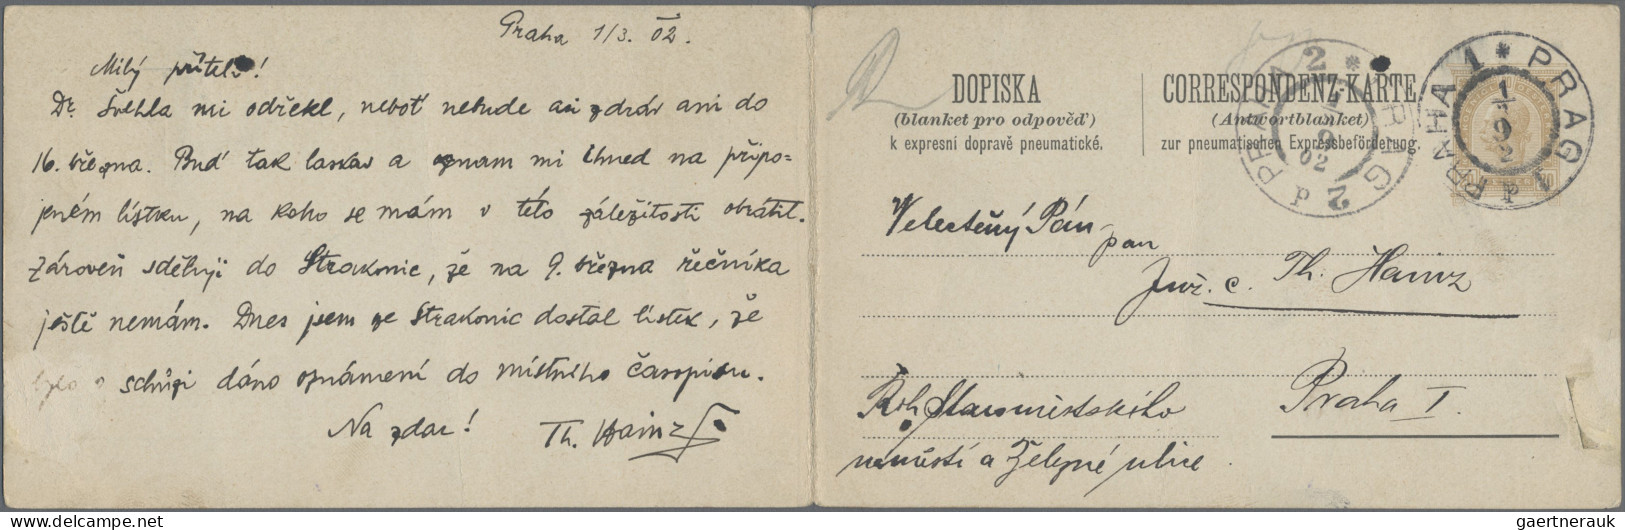 Praha 1/3. 02.
Milý příteli!
Dr. Švehla mi odřekl, neboť nebude asi zdráv ani do
16. března. Buď tak laskav a oznam mi ihned na připo-
jeném lístku, na koho se mám v této záležitosti obrátit.
Zároveň sděluji do Strakonic, že na 9. března řečníka
ještě nemám. Dnes jsem ze Strakonic dostal lístek, že
bylo o schůzi dáno oznámení do místního časopisu.
Na zdar! Th. Hainz
DOPISKA
(blanket pro odpověď)
k expresní dopravě pneumatické.
CORRESPONDENZ-KARTE
(Antwortblanket)
zur pneumatischen Expressbeförderung.
PRAG 2 PRAHA 2
02
PRAG 1 PRAHA 1
1/3
9
02
Velectěný Pán
pan
Jur. c. Th. Hainz
Roh Staroměstského
náměstí a Železné ulice
Praha I.
gaertnerauk